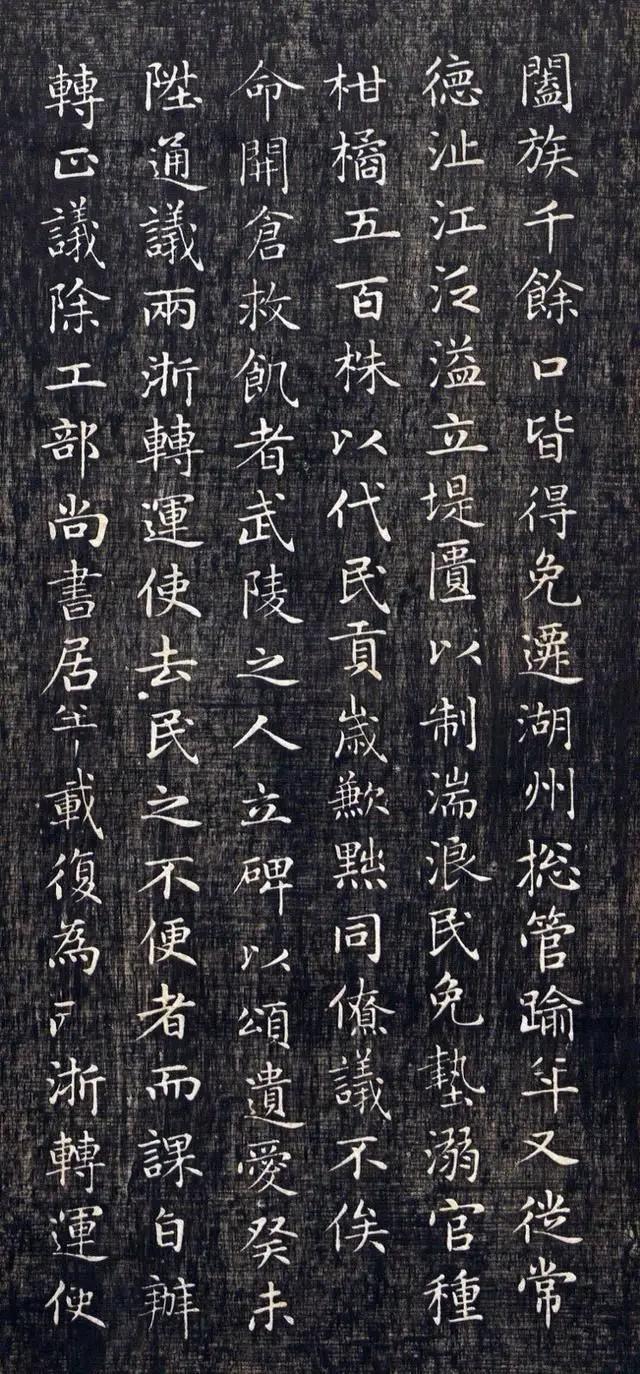 闔族千餘口皆得免遷湖州揔管踰年又從常
德沚江泛溢立堤匱以制湍浪民免墊溺官種
柑橘五百株以代民貢歲歉黙同僚議不俟
命開倉救飢者武陵之人立碑以頌遺愛癸未
陞通議兩浙轉運使去民之不便者而課自辦
轉正議除工部尚書居半載復為浙轉運使